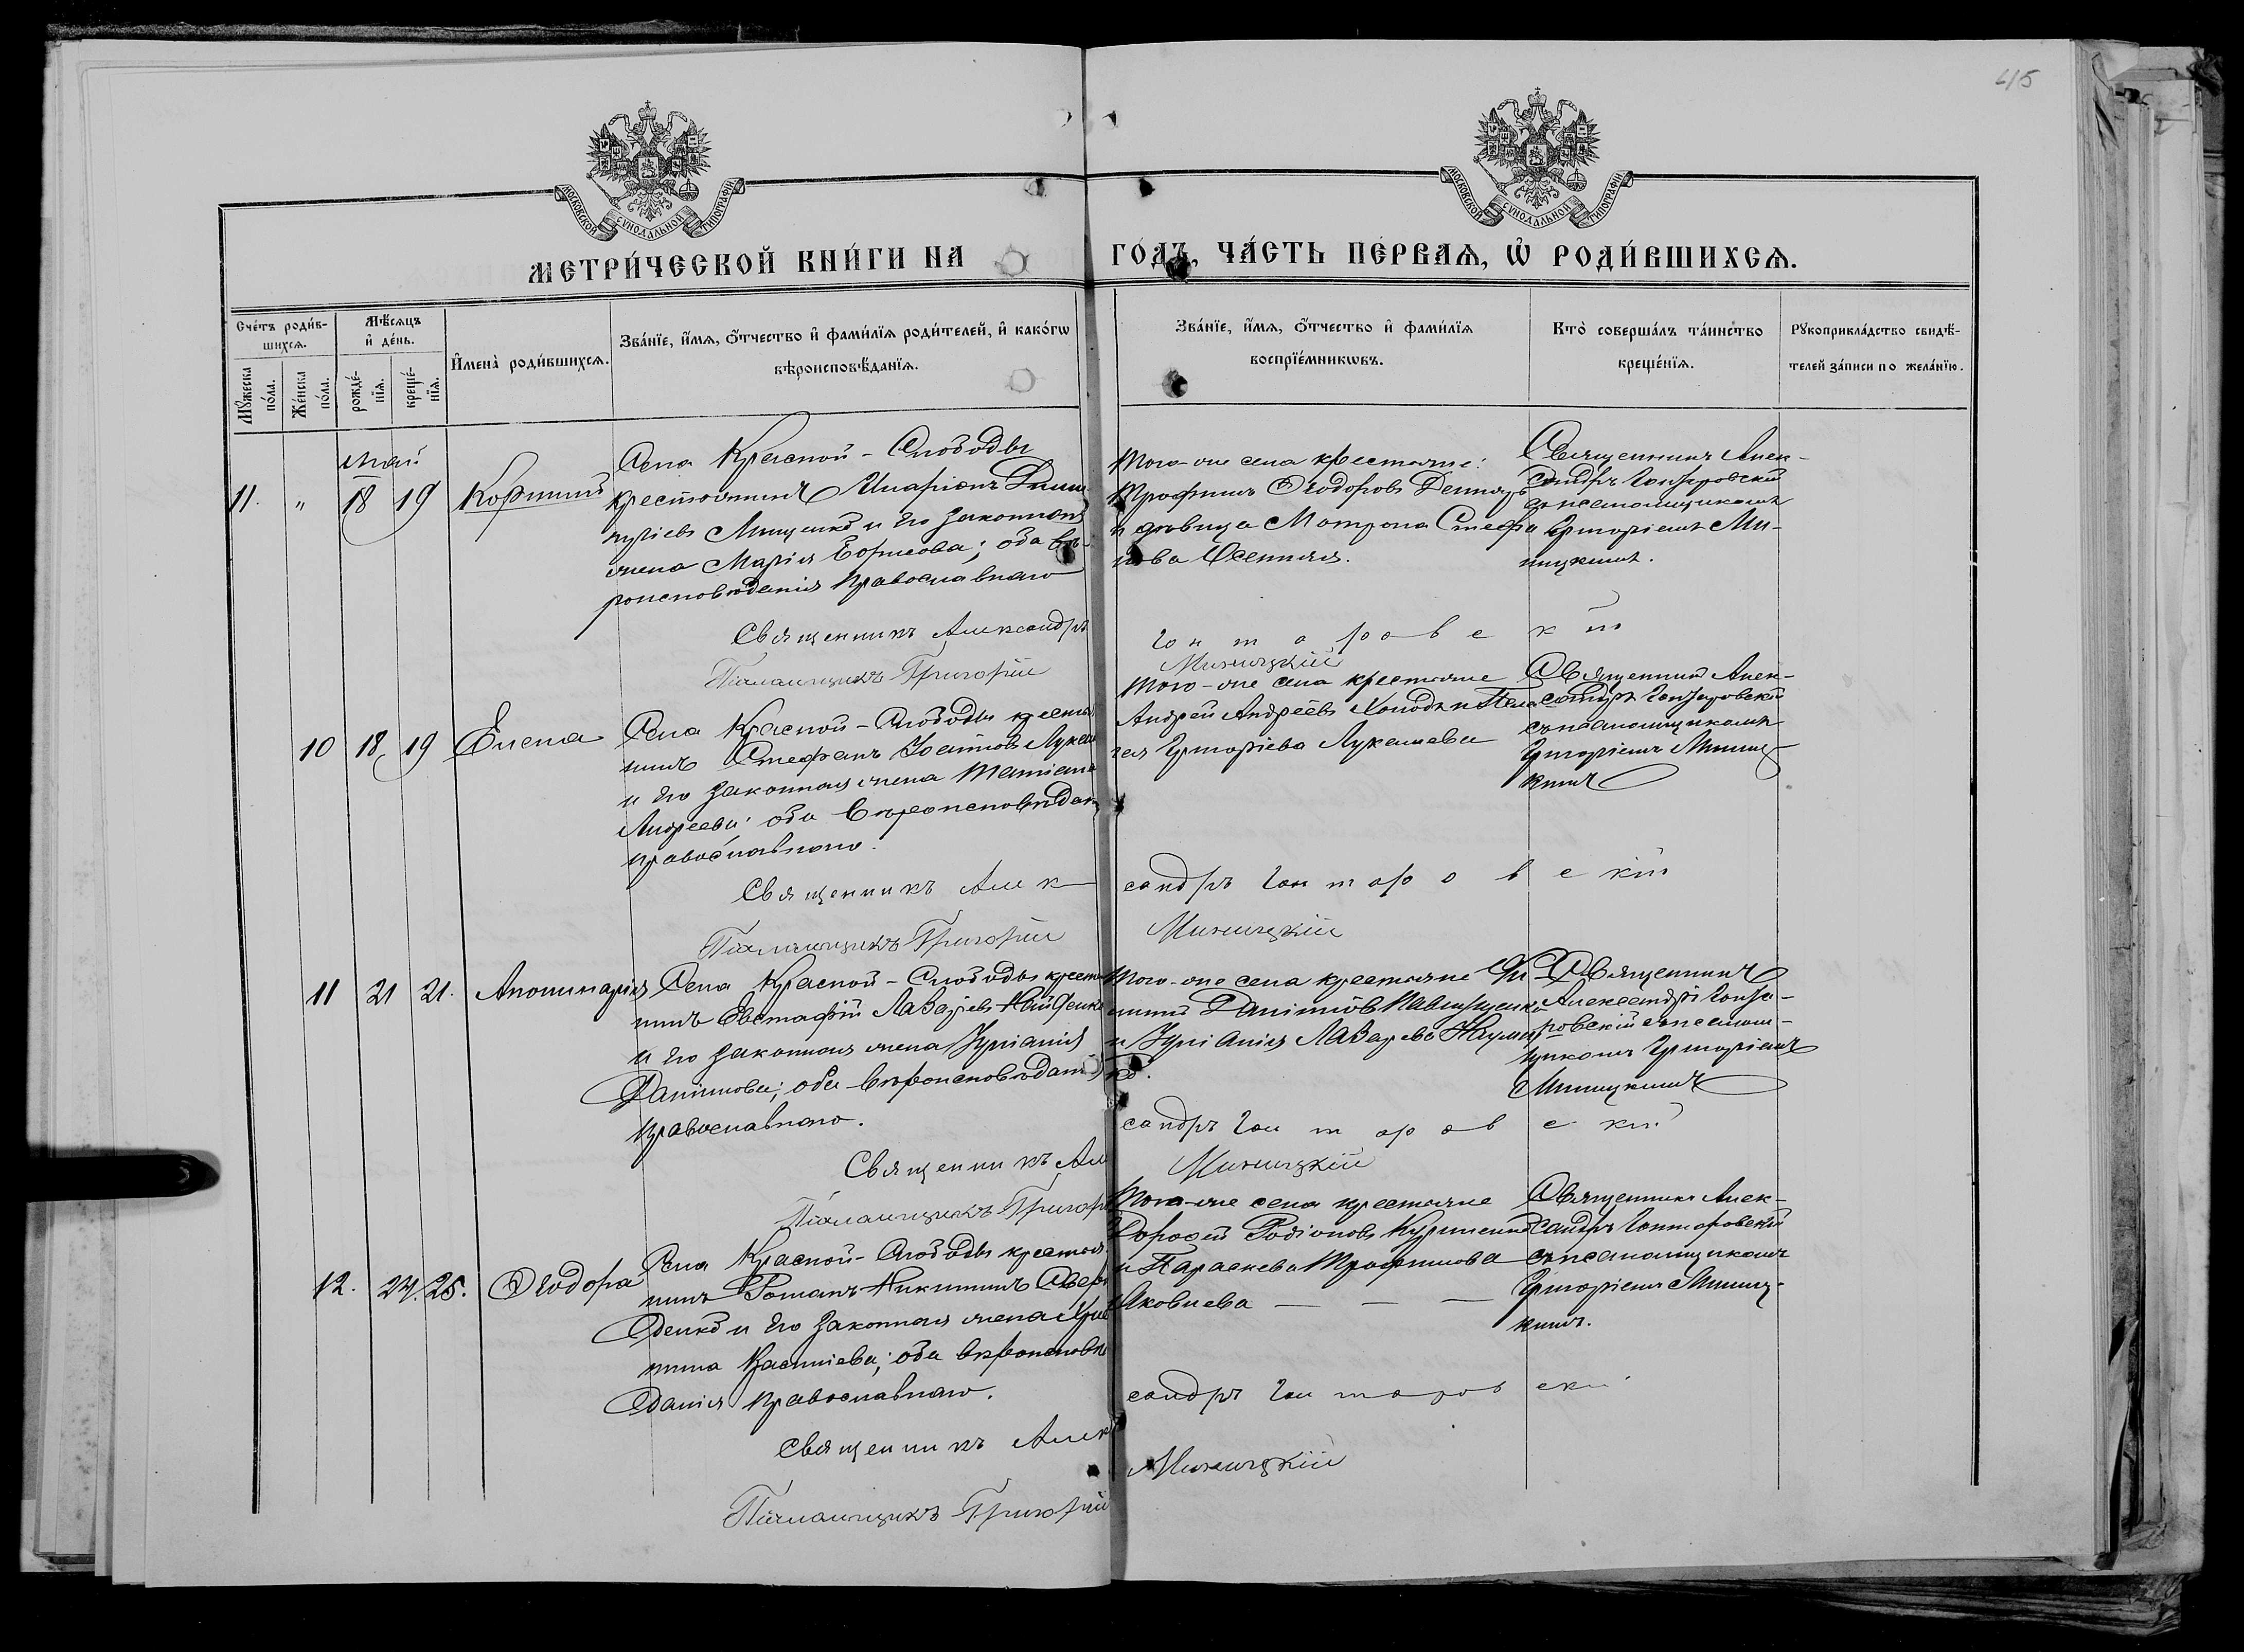 415
МОСКОВСКОЙ СУНОДАЛЬНОЙ ТИПОГРАФІИ
МОСКОВСКОЙ СУНОДАЛЬНОЙ ТИПОГРАФІИ
МЕТРИ́ЧЕСКОЙ КНИ́ГИ НА ГО́ДЪ, ЧА́СТЬ ПЕ́РВАѦ, Ѡ҆ РОДИ́ВШИХСѦ.
Сче́тъ роди́в-
шихсѧ.
Мꙋ́жеска
по́ла.
Же́нска
по́ла.
Мѣ́сѧцъ
и҆ де́нь.
рожде́-
нїѧ.
креще́-
нїѧ.
И҆мена̀ роди́вшихсѧ.
Зва́нїе, и҆́мѧ, ѻ҆́тчество и҆ фами́лїѧ роди́телей, и҆ како́гѡ
вѣроисповѣ́данїѧ.
Зва́нїе, и҆́мѧ, ѻ҆́тчество и҆ фами́лїѧ
воспрїе́мникѡвъ.
Кто̀ соверша́лъ та́инство
креще́нїѧ.
Рꙋкоприкла́дство свидѣ́-
телей за́писи по жела́нїю.
Май
11. " 18 19 Корнилій
Села Красной-Слободы
крестьянинъ Иларіонъ
Мищенко и его законная
жена Марія Борисова; оба вѣ-
роисповѣданія православнаго
Того-же села крестьяне:
Трофимъ Ѳеодоровъ
и дѣвица Матрона Стефа
нова Осенняя.
Священникъ Алек-
сандръ Гонтаровскій
съ псаломщикомъ
Григоріемъ Ми-
ницкимъ.
Священникъ Александръ Гонтаровскій
Псаломщикъ Григорій Миницкій
10 18 19 Елена
Села Красной-Слободы крестья
нинъ Стефанъ Іоанновъ Лукаш
и его законная жена Татіана
Андреева; оба вѣроисповѣдан
православнаго.
Того-же села крестьяне
Андрей Андреевъ Холодъ и Пела
гея Григоріева Лукашева
Священникъ Алек-
сандръ Гонтаровскій
съ псаломщикомъ
Григоріемъ Миниц-
кимъ
Священникъ Александръ Гонтаровскій
Псаломщикъ Григорій Миницкій
11 21 21. Аполинарія
Села Красной-Слободы крестья
нинъ Евстафій Лазаревъ
и его законная жена Іуліанія
Даніилова; оба вѣроисповѣданія
православнаго.
Того-же села крестьяне Фи
липпъ Даніиловъ
и Іуліанія Лазарева Наумен
ко.
Священникъ
Александръ Гонта-
ровскій съ псалом-
щикомъ Григоріемъ
Миницкимъ
Священникъ Александръ Гонтаровскій
Псаломщикъ Григорій Миницкій
12. 24. 25. Ѳеодора
Села Красной-Слободы крестья
нинъ Романъ Никитинъ
денко и его законная жена
православнаго
дания православнаго.
Того-же села крестьяне
Дороѳей Родіоновъ
и Параскева Трофимова
Яковлева — — —
Священникъ Алек-
сандръ Гонтаровскій
съ псаломщикомъ
Григоріемъ Миниц-
кимъ.
Священникъ Александръ Гонтаровскій
Псаломщикъ Григорій Миницкій